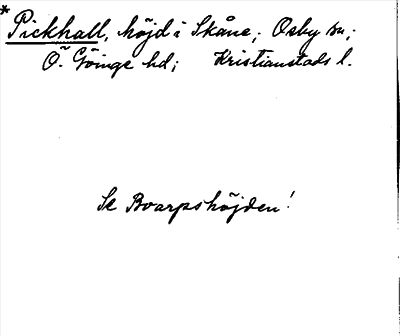 *Pickhall, höjd i Skåne; Osby sn;
Ö. Göinge hd; Kristianstads l.
Se Boarpshöjden!